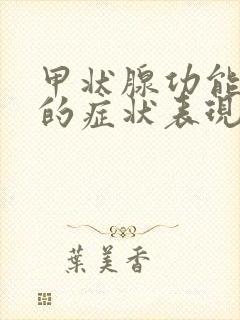 甲状腺功能
的症状表現
葉美香